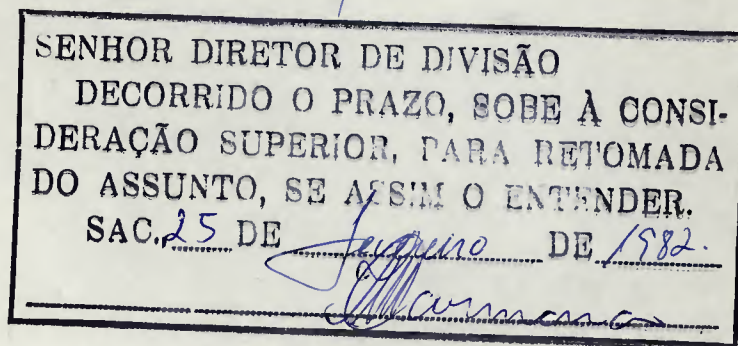 SENHOR DIRETOR DE DIVISÃO
DECORRIDO O PRAZO, SOBE À CONSI-
DERAÇÃO SUPERIOR, PARA RETOMADA
DO ASSUNTO, SE ASSIM O ENTENDER.
SAC. 25 DE fevereiro DE 1982.